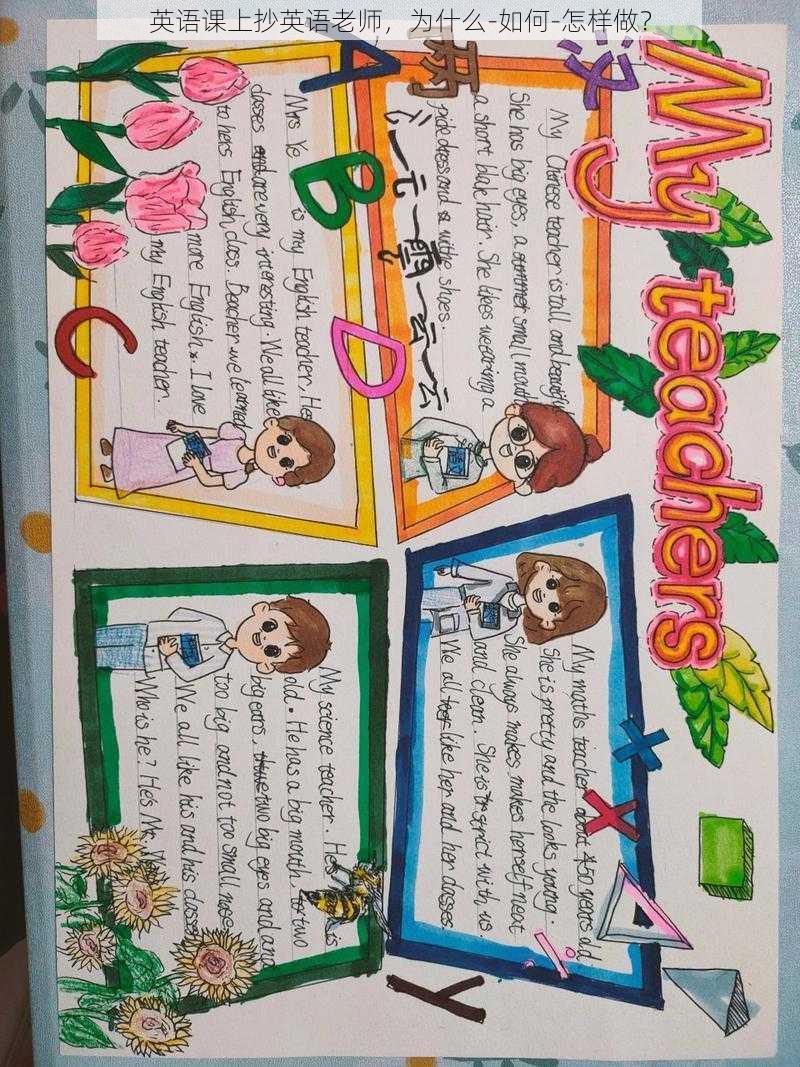 英语课上抄英语老师，为什么-如何-怎样做？
My teachers
汉
丙
My Chinese teacher is tall and beautiful
She has big eyes, a small mouth
a short blak hair. She likes wearing a
pide dress and a withe shoes.
A
B
C
D
Mrs Ye is my English teacher. Her
classes are very interesting. We all like
to hers English class. Beacher we learned
more English. I love
my English teacher.
My maths teacher about 45 years old
She is pretty and the looks young.
She always makes makes herself neat
and clean. She is strict with us
We all like her and her classes.
My science teacher. He is
old. He has a big mouth, two
big ears, two big eyes and a
too big and not too small nose
We all like his and his classes
Who is he? He's Mr.
x
x
÷
y